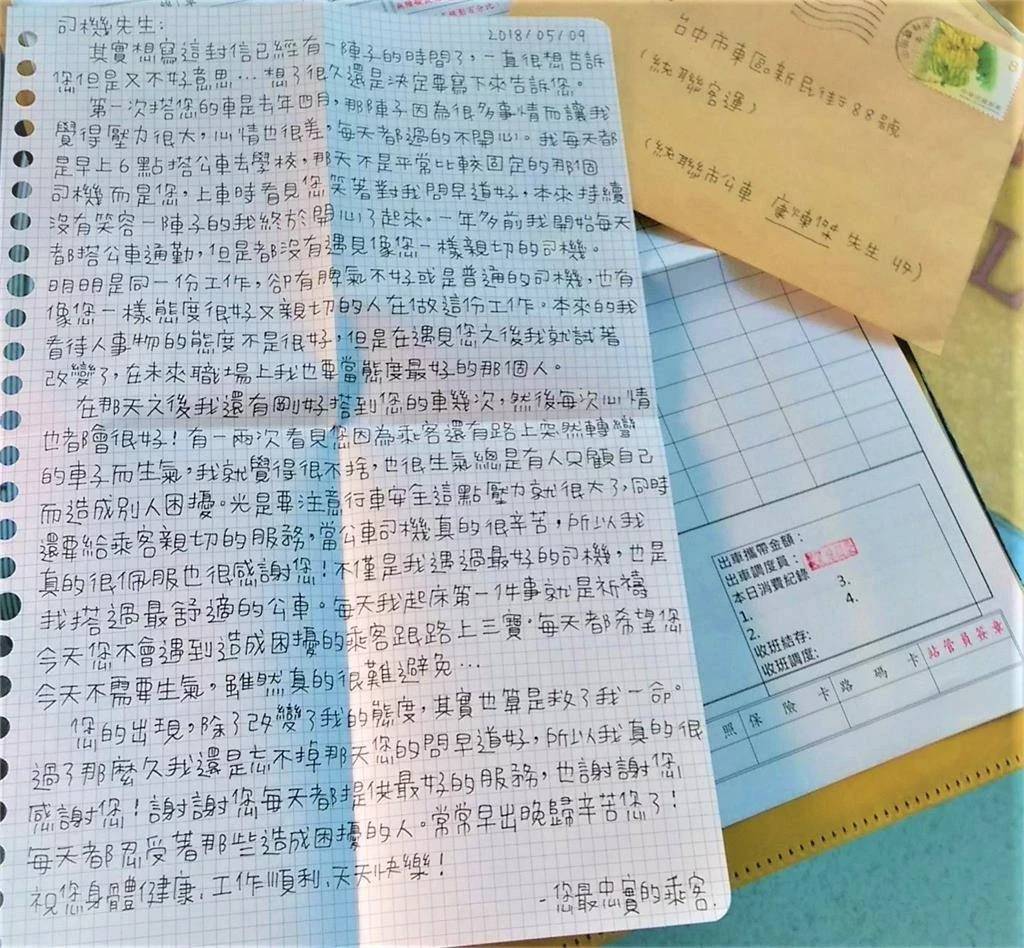 司機先生:
2018/05/09
其實想寫這封信已經有一陣子的時間了,一直很想告訴
您但是又不好意思…想了很久還是決定要寫下來告訴您。
第一次搭您的車是去年四月,那陣子因為很多事情而讓我
覺得壓力很大,心情也很差,每天都過的不開心。我每天都
是早上6點搭公車去學校,那天不是平常比較固定的那個
司機而是您,上車時看見您笑著對我問早道好,本來持續
沒有笑容一陣子的我終於開心了起來。一年多前我開始每天
都搭公車通勤,但是都沒有遇見像您一樣親切的司機。
明明是同一份工作,卻有脾氣不好或是普通的司機,也有
像您一樣態度很好又親切的人在做這份工作。本來的我
看待人事物的態度不是很好,但是在遇見您之後我就試著
改變了,在未來職場上我也要當態度最好的那個人。
在那天之後我還有剛好搭到您的車幾次,然後每次心情
也都會很好!有一兩次看見您因為乘客還有路上突然轉彎
的車子而生氣,我就覺得很不捨,也很生氣總是有人只顧自己
而造成別人困擾。光是要注意行車安全這點壓力就很大了,同時
還要給乘客親切的服務,當公車司機真的很辛苦,所以我
真的很佩服也很感謝您!不僅是我遇過最好的司機,也是
我搭過最舒適的公車。每天我起床第一件事就是祈禱
今天您不會遇到造成困擾的乘客跟路上三寶。每天都希望您
今天不需要生氣,雖然真的很難避免…
您的出現,除了改變了我的態度,其實也算是救了我一命。
過了那麼久我還是忘不掉那天您的問早道好,所以我真的很
感謝您!謝謝您每天都提供最好的服務,也謝謝您
每天都忍受著那些造成困擾的人。常常早出晚歸辛苦您了!
祝您身體健康、工作順利、天天快樂!
-您最忠實的乘客.
台中市東區新民街88號
(統聯客運)
(統聯市公車 先生 收)
8
出車攜帶金額:
出車調度員:
本日消費紀錄
1. 3.
2. 4.
收班結存:
收班調度:
照 保 險 卡 路 碼 卡 站管員簽章